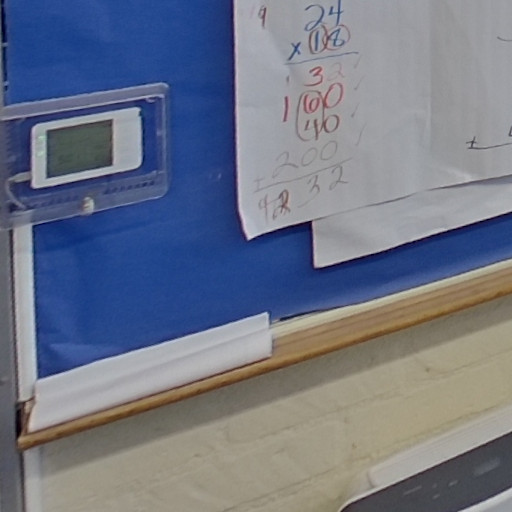 24
x 18
32
160
40
+ 200
432
+